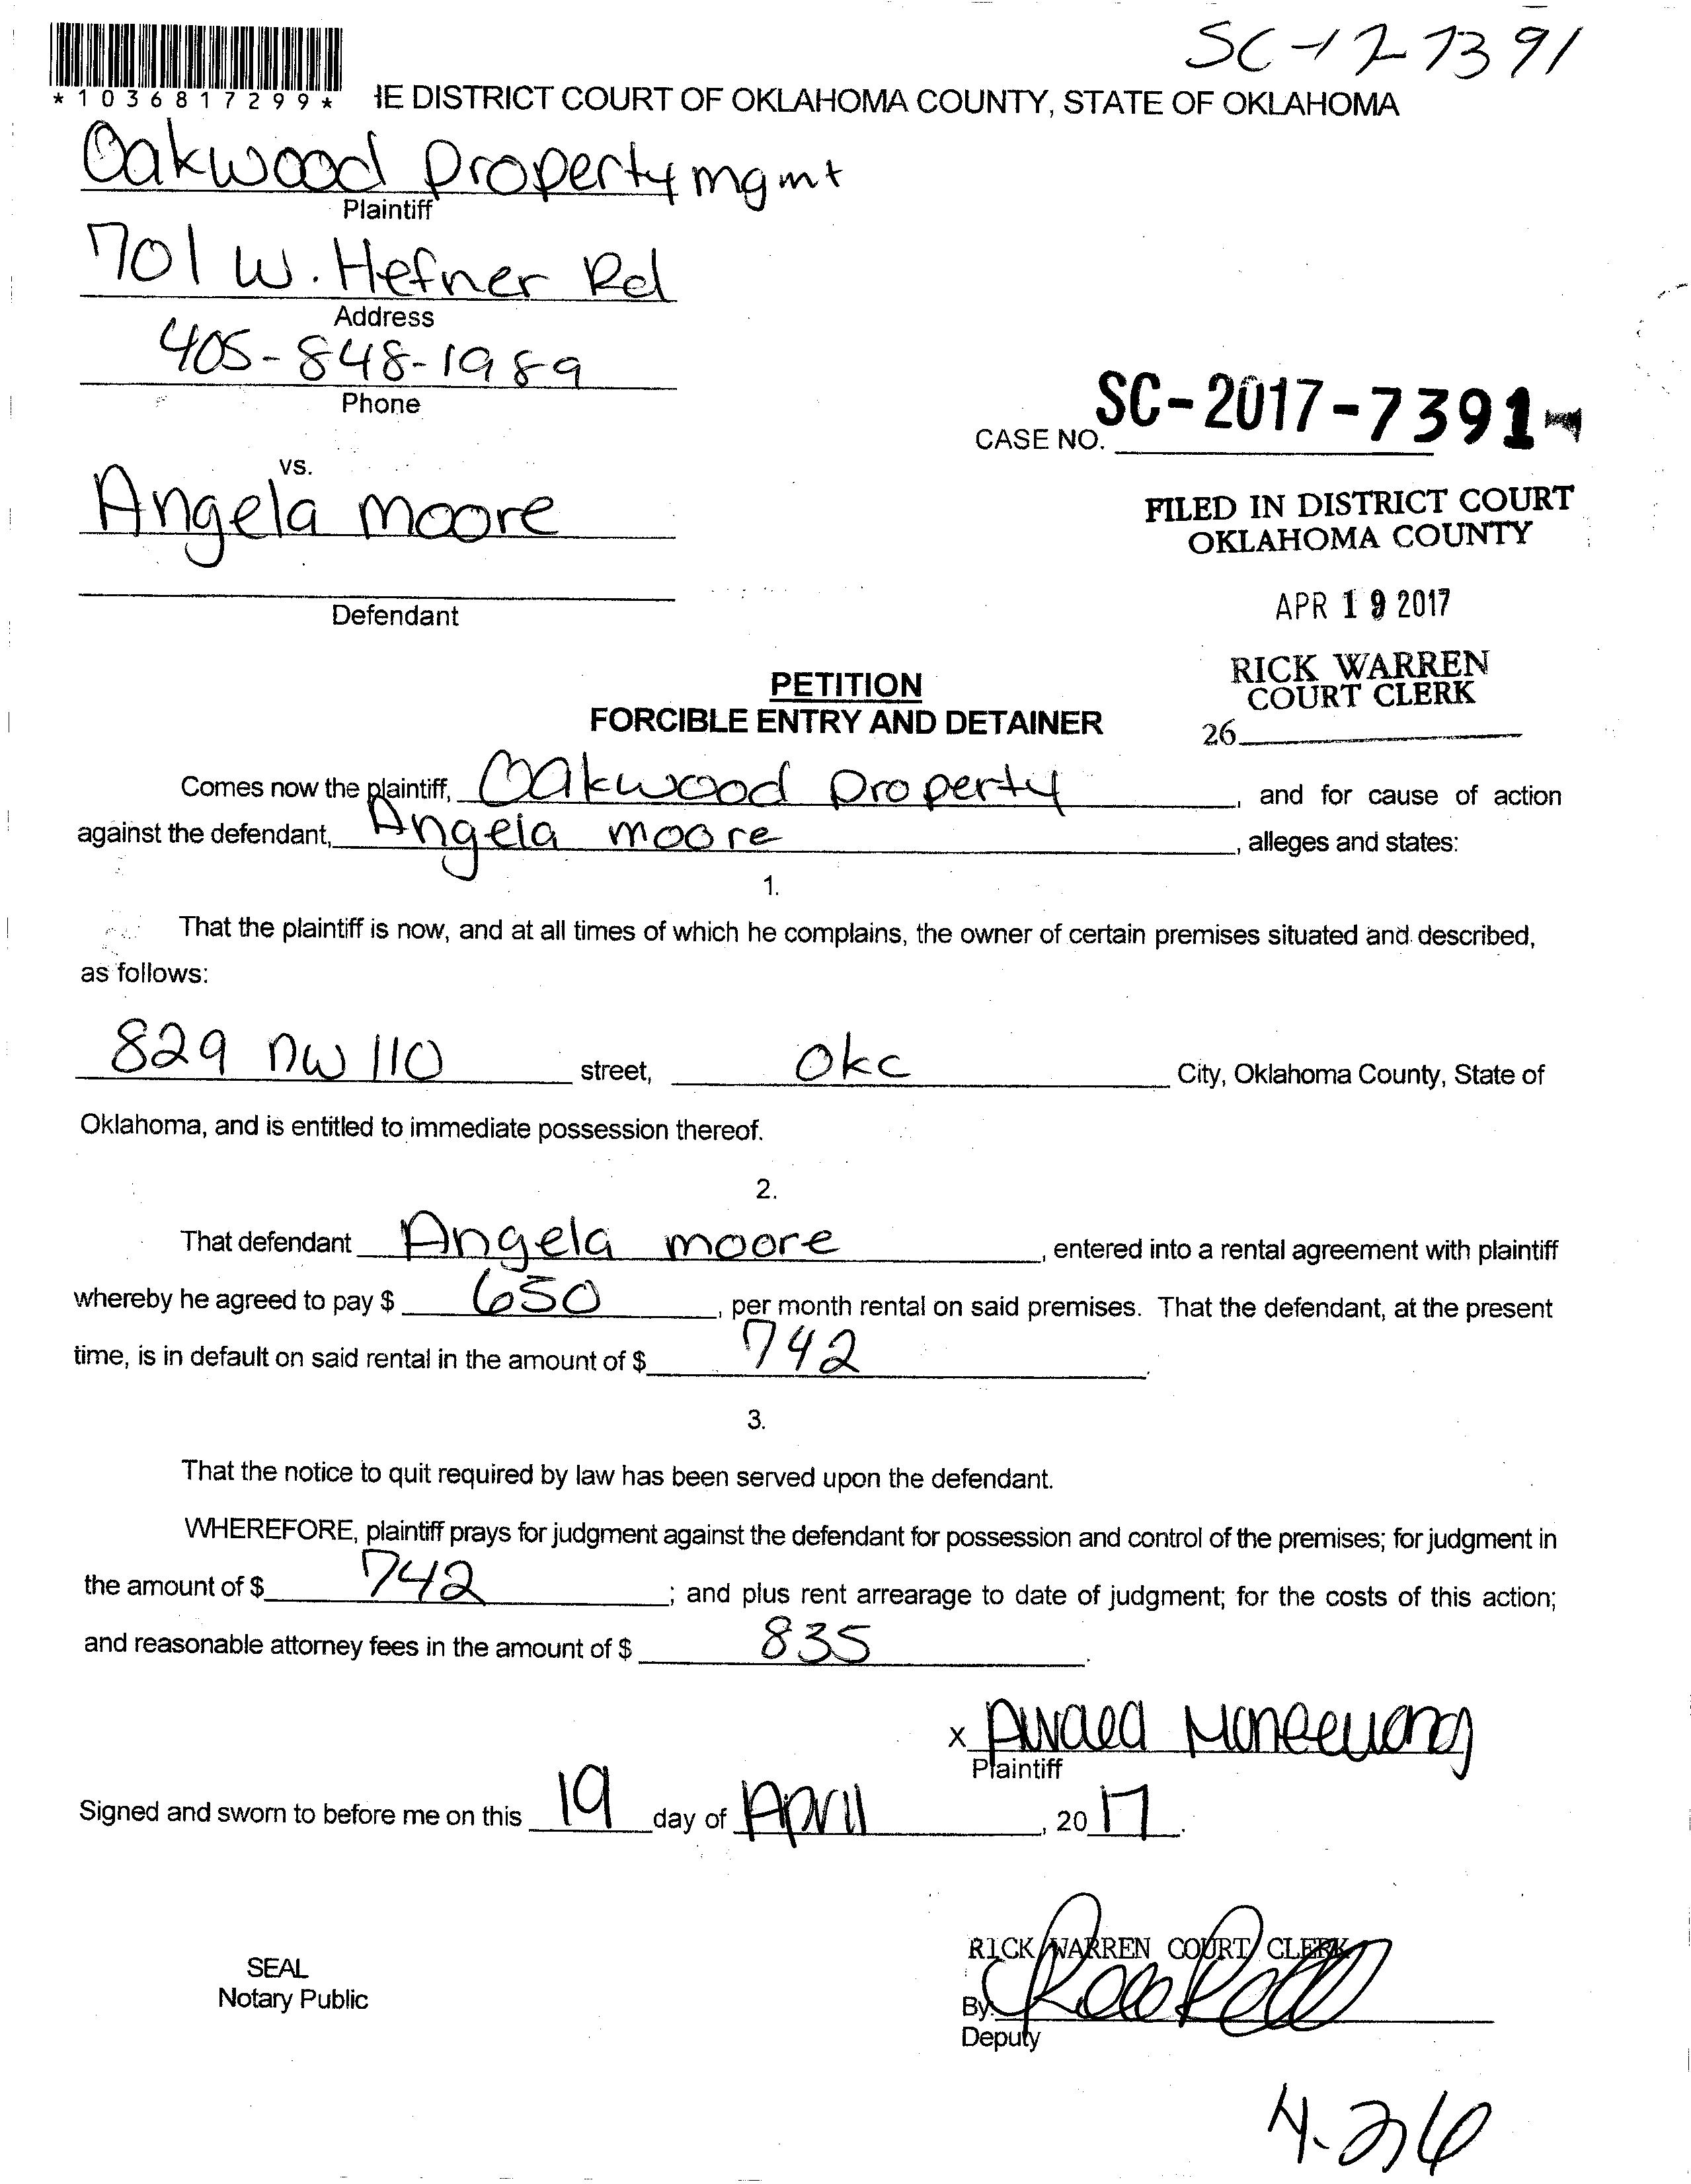 SC-17-7391
*1036817299*
HE DISTRICT COURT OF OKLAHOMA COUNTY, STATE OF OKLAHOMA
Oakwood Property mgmt
Plaintiff
701 W. Hefner Rd
Address
405-848-1989
Phone
CASE NO. SC-2017-7391
vs.
Angela moore
FILED IN DISTRICT COURT
OKLAHOMA COUNTY
Defendant
APR 19 2017
RICK WARREN
COURT CLERK
26
PETITION
FORCIBLE ENTRY AND DETAINER
Comes now the plaintiff, Oakwood Property, and for cause of action
against the defendant, Angela moore, alleges and states:
1.
That the plaintiff is now, and at all times of which he complains, the owner of certain premises situated and described,
as follows:
829 NW 110 street, OKC City, Oklahoma County, State of
Oklahoma, and is entitled to immediate possession thereof.
2.
That defendant Angela moore, entered into a rental agreement with plaintiff
whereby he agreed to pay $ 650, per month rental on said premises. That the defendant, at the present
time, is in default on said rental in the amount of $ 742.
3.
That the notice to quit required by law has been served upon the defendant.
WHEREFORE, plaintiff prays for judgment against the defendant for possession and control of the premises; for judgment in
the amount of $ 742; and plus rent arrearage to date of judgment; for the costs of this action;
and reasonable attorney fees in the amount of $ 835.
X
Plaintiff
Signed and sworn to before me on this 19 day of April, 2017.
RICK WARREN COURT CLERK
SEAL
Notary Public
By:
Deputy
4-26